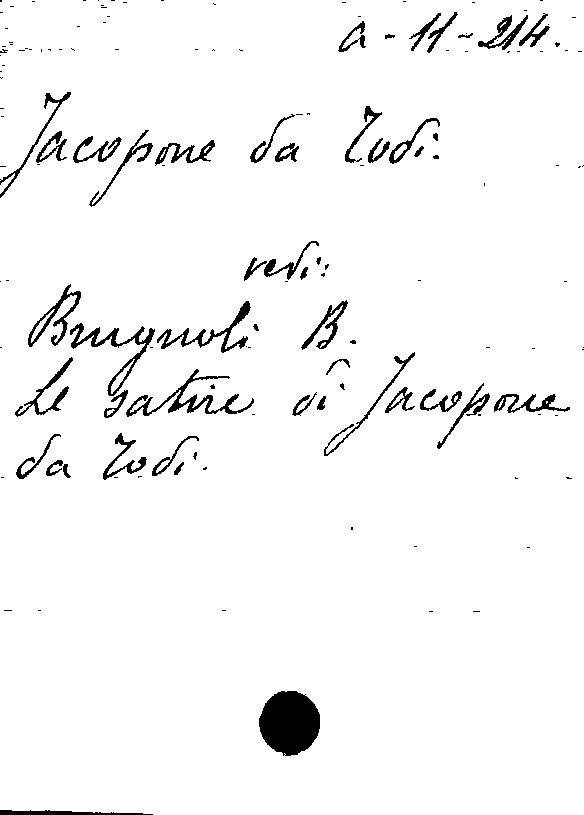 a-11-214.
Jacopone da Todi.
vedi:
Brugnoli B.
Le satire di Jacopone
da Todi.